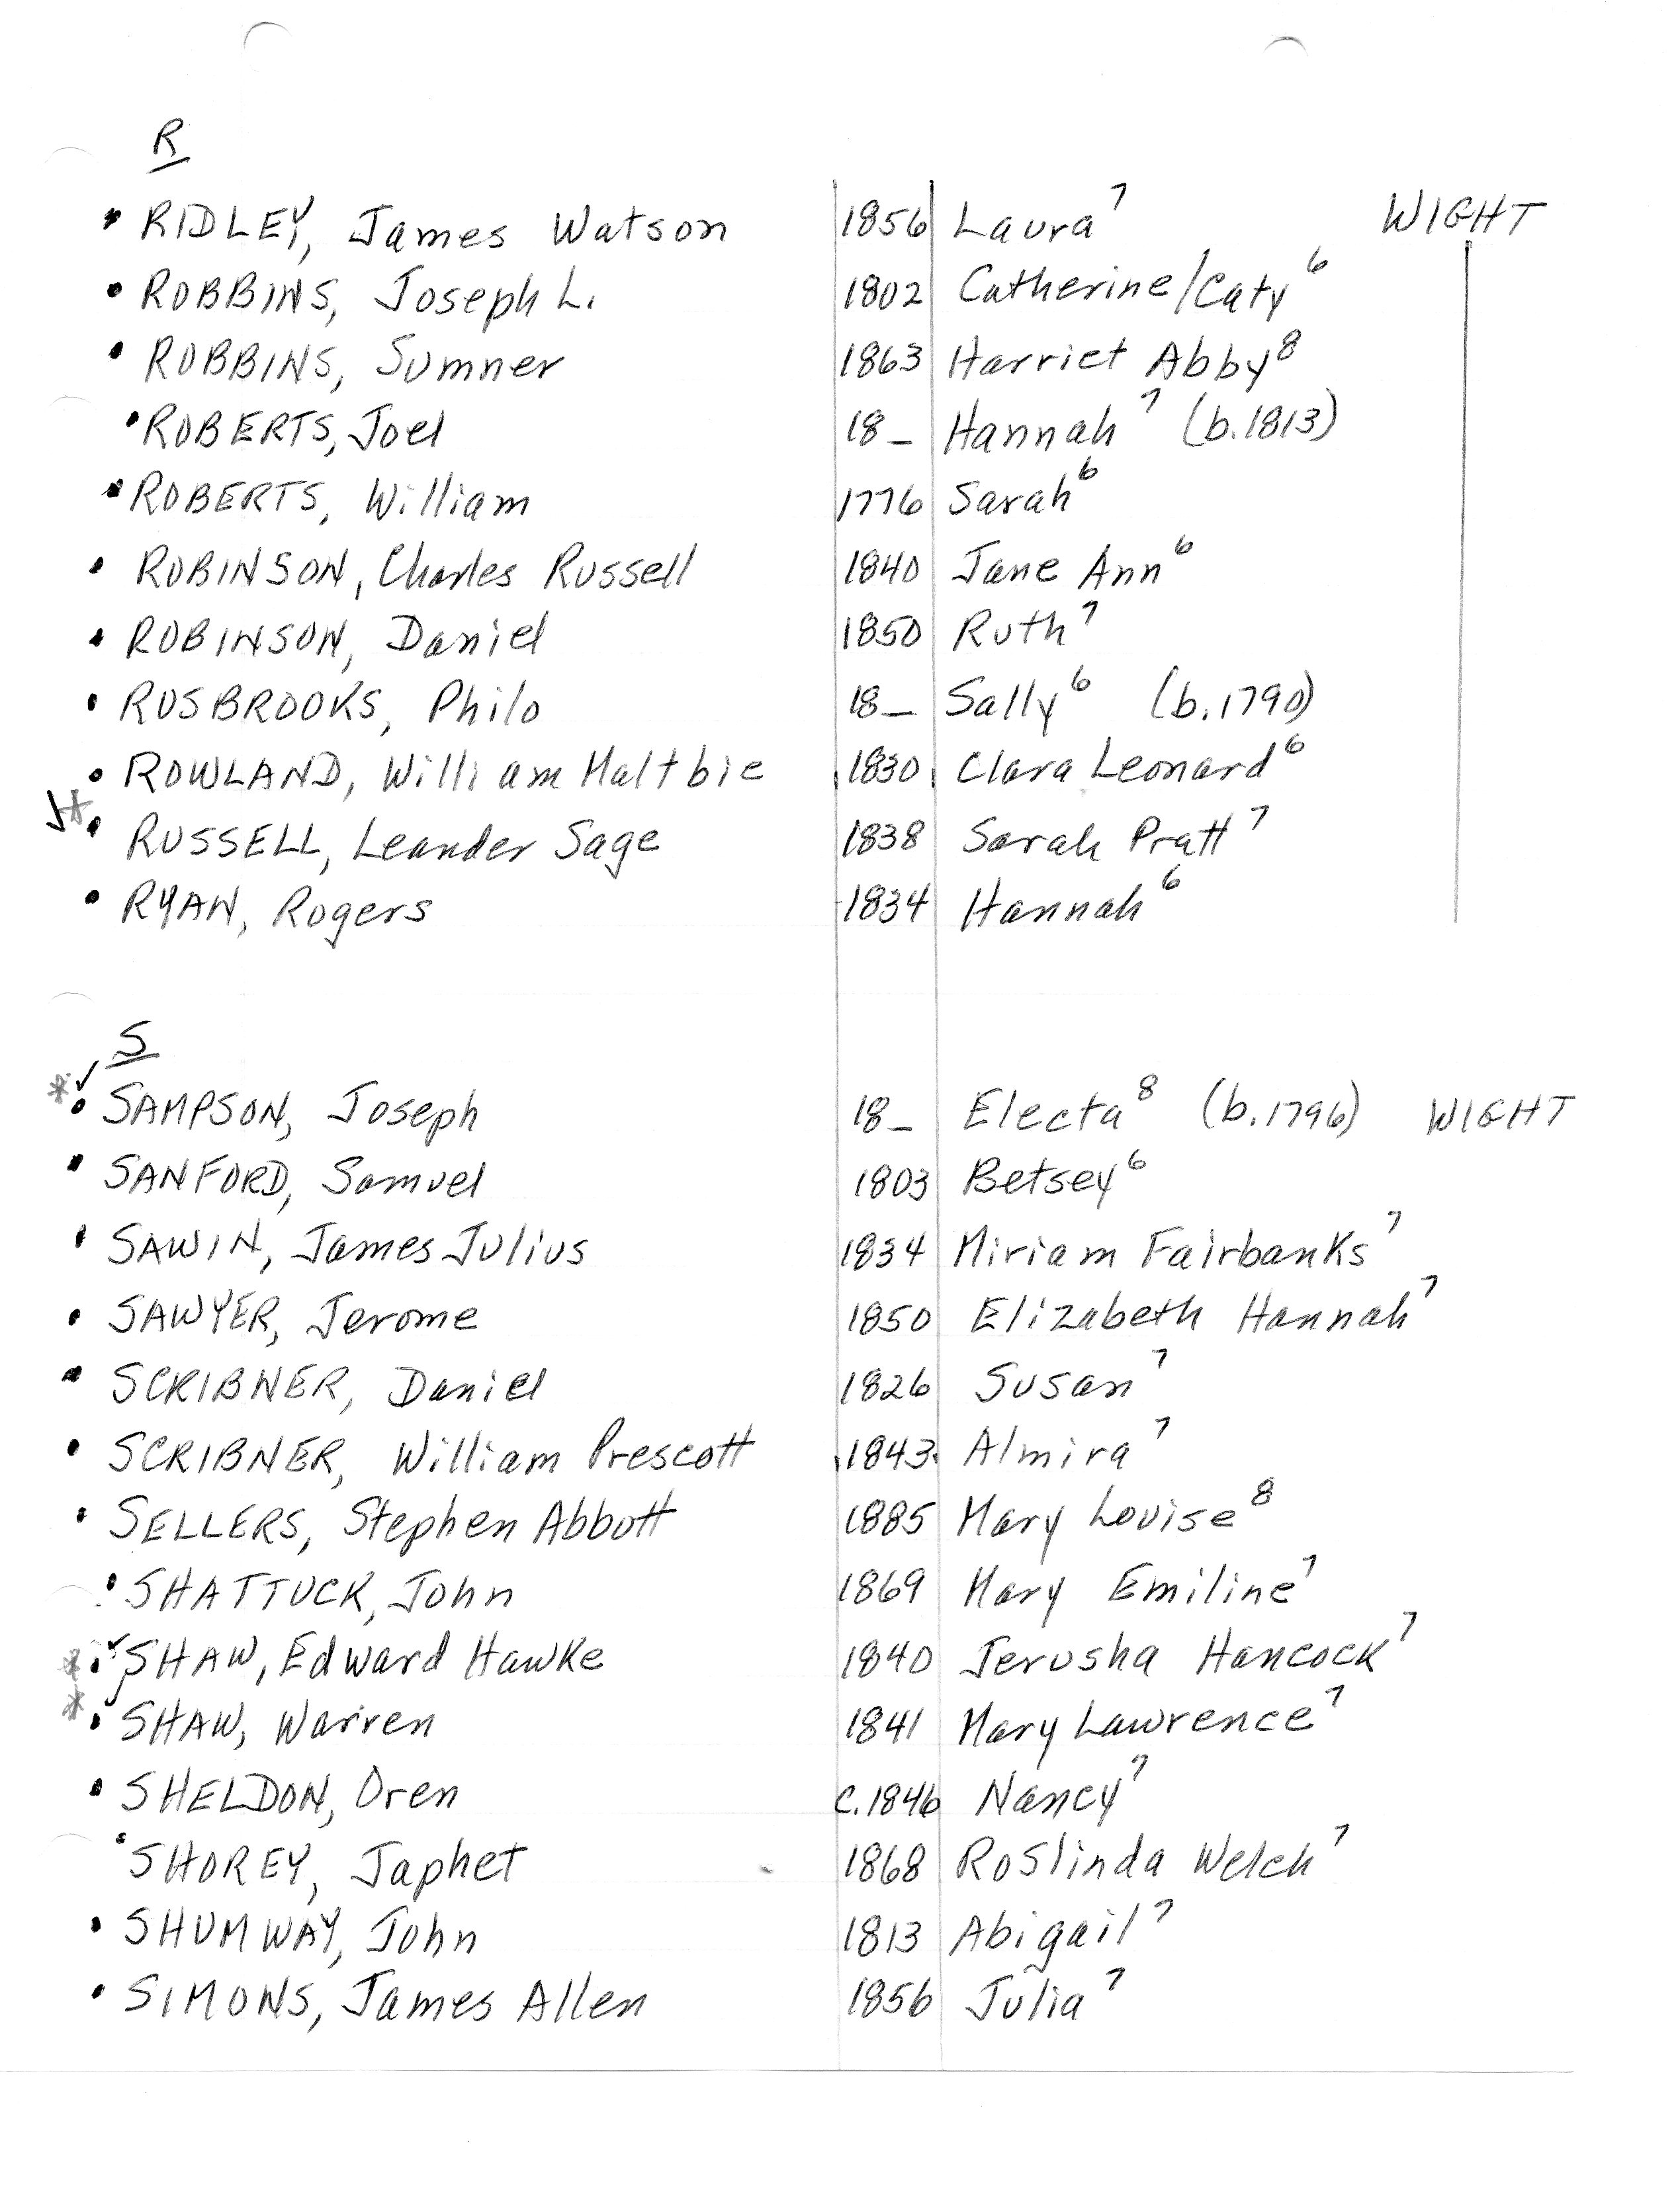 R
• RIDLEY, James Watson 1856 Laura⁷ WIGHT
• ROBBINS, Joseph L. 1802 Catherine/Caty⁶
• ROBBINS, Sumner 1863 Harriet Abby⁸
• ROBERTS, Joel 18_ Hannah⁷ (b.1813)
• ROBERTS, William 1776 Sarah⁶
• ROBINSON, Charles Russell 1840 Jane Ann⁶
• ROBINSON, Daniel 1850 Ruth⁷
• ROSBROOKS, Philo 18_ Sally⁶ (b.1790)
• ROWLAND, William Maltbie 1830 Clara Leonard⁶
✓* • RUSSELL, Leander Sage 1838 Sarah Pratt⁷
• RYAN, Rogers 1834 Hannah⁶
S
*✓ • SAMPSON, Joseph 18_ Electa⁸ (b.1796) WIGHT
• SANFORD, Samuel 1803 Betsey⁶
• SAWIN, James Julius 1834 Miriam Fairbanks⁷
• SAWYER, Jerome 1850 Elizabeth Hannah⁷
• SCRIBNER, Daniel 1826 Susan⁷
• SCRIBNER, William Prescott 1843 Almira⁷
• SELLERS, Stephen Abbott 1885 Mary Louise⁸
• SHATTUCK, John 1869 Mary Emiline⁷
* •✓ SHAW, Edward Hawke 1840 Jerusha Hancock⁷
* •✓ SHAW, Warren 1841 Mary Lawrence⁷
• SHELDON, Oren c.1846 Nancy⁷
• SHOREY, Japhet 1868 Roslinda Welch⁷
• SHUMWAY, John 1813 Abigail⁷
• SIMONS, James Allen 1856 Julia⁷